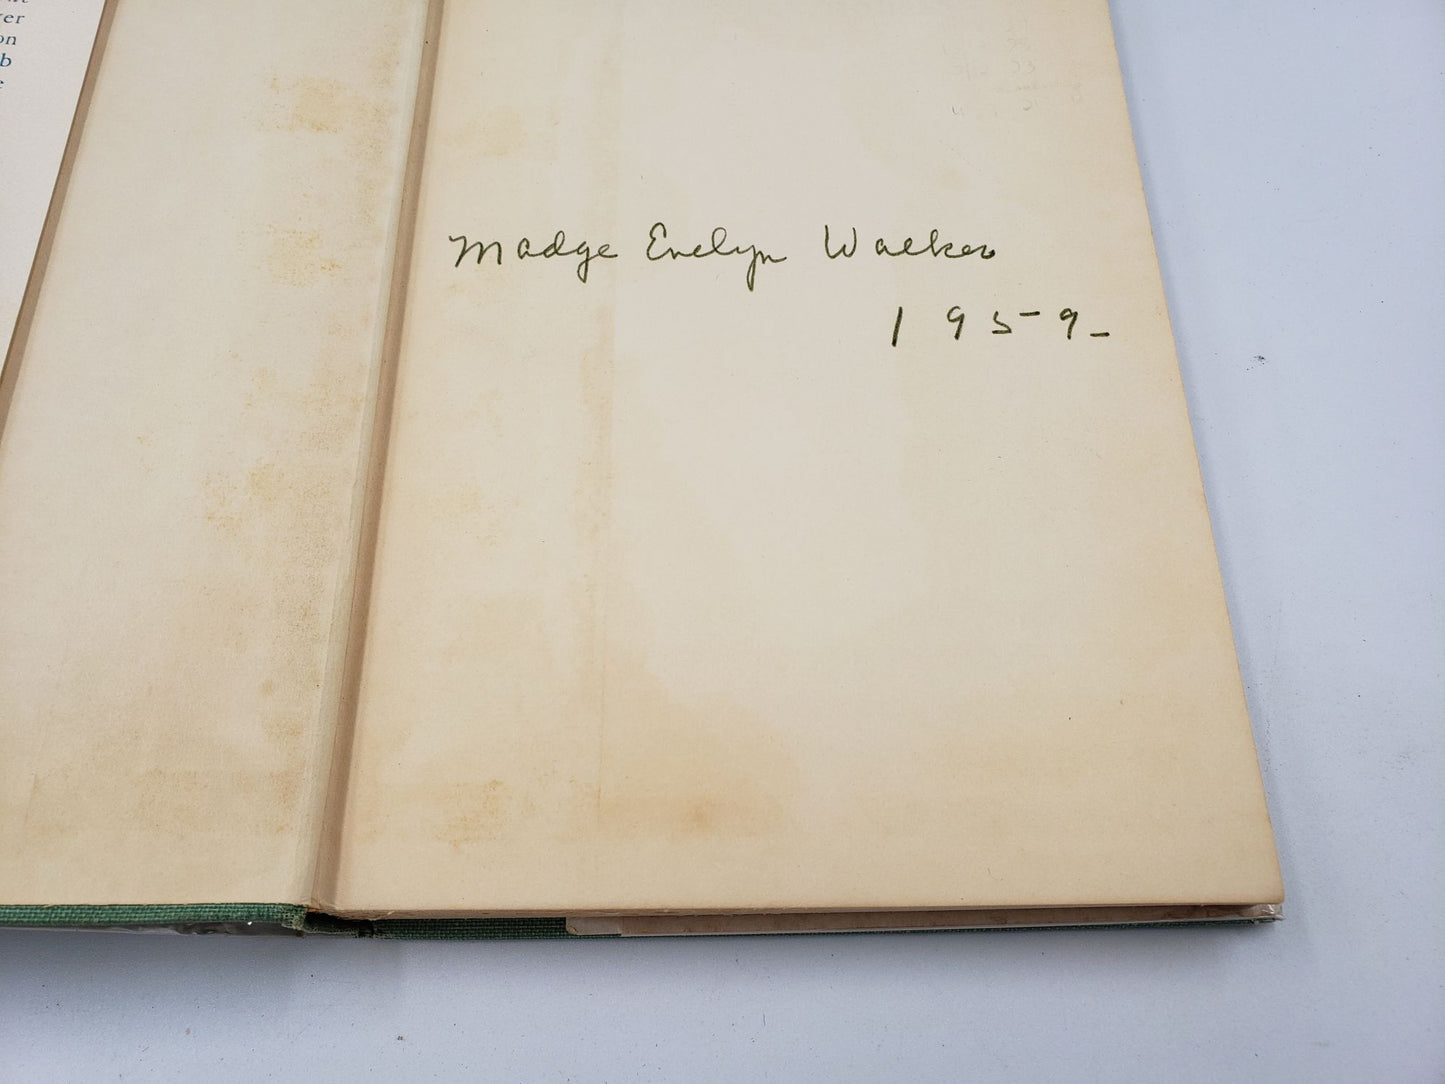 er
on
b
e
Madge Evelyn Walker
1959-